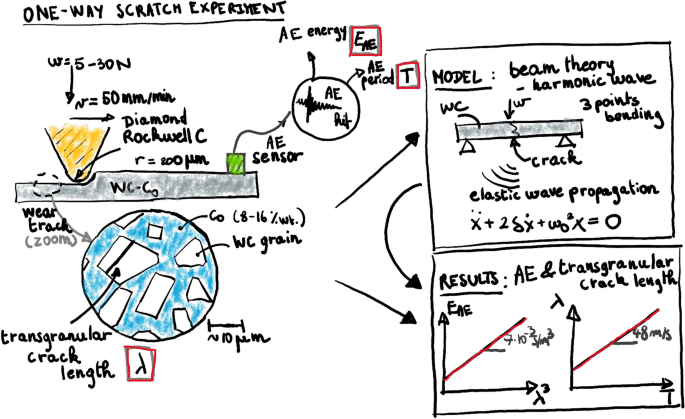 ONE-WAY SCRATCH EXPERIMENT
w=5-30N
v=50mm/min
Diamond
Rockwell C
r=200μm
WC-Co
wear
track
(zoom)
AE energy E_AE
AE
period T
AE
hit
AE
sensor
Co (8-16%wt.)
WC grain
transgranular
crack
length λ
~10μm
MODEL: beam theory
- harmonic wave
WC
w
3 points
bending
crack
elastic wave propagation
ẍ+2δẋ+ω₀²x=0
RESULTS: AE & transgranular
crack length
E_AE
7·10⁻³ J/m³
λ³
λ
48m/s
T